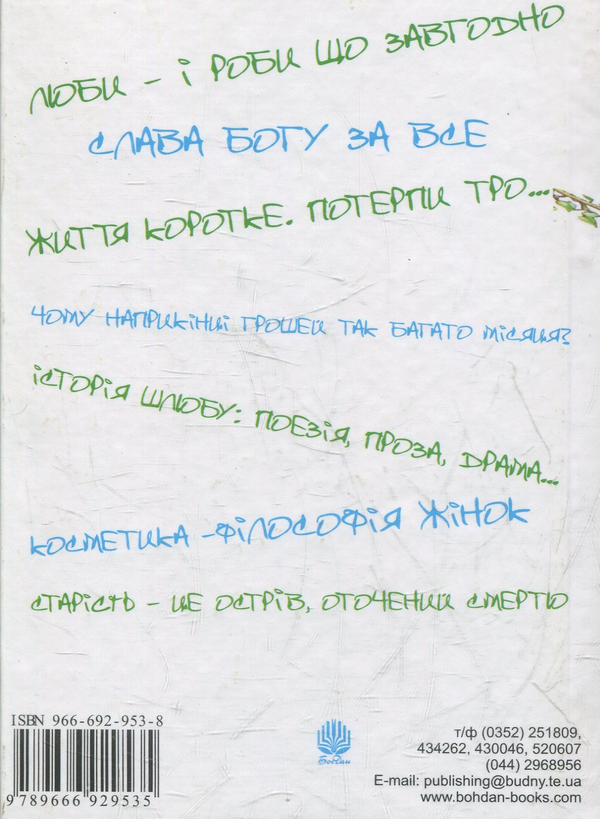 ЛЮБИ - І РОБИ ЩО ЗАВГОДНО
СЛАВА БОГУ ЗА ВСЕ
ЖИТТЯ КОРОТКЕ. ПОТЕРПИ ТРО...
ЧОМУ НАПРИКІНЦІ ГРОШЕЙ ТАК БАГАТО МІСЯЦЯ?
ІСТОРІЯ ШЛЮБУ: ПОЕЗІЯ, ПРОЗА, ДРАМА...
КОСМЕТИКА - ФІЛОСОФІЯ ЖІНОК
СТАРІСТЬ - ЦЕ ОСТРІВ, ОТОЧЕНИЙ СМЕРТЮ
ISBN 966-692-953-8
9789666929535
Богдан
т/ф (0352) 251809,
434262, 430046, 520607
(044) 2968956
E-mail: publishing@budny.te.ua
www.bohdan-books.com